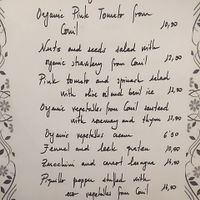 Organic Pink Tomato from
Conil 10,50
Nuts and seeds salad with
organic strawberry from Conil 12,50
Pink tomato and spinach salad
with olive oil and basil ice 12,50
Organic vegetables from Conil
with rosemary and thyme 12,90
Organic vegetables cream 6'50
Fennel and leek gratin 10,50
Zucchini and carrot lasagna 14,50
Piquillo pepper stuffed with
eco vegetables from Conil 14,50